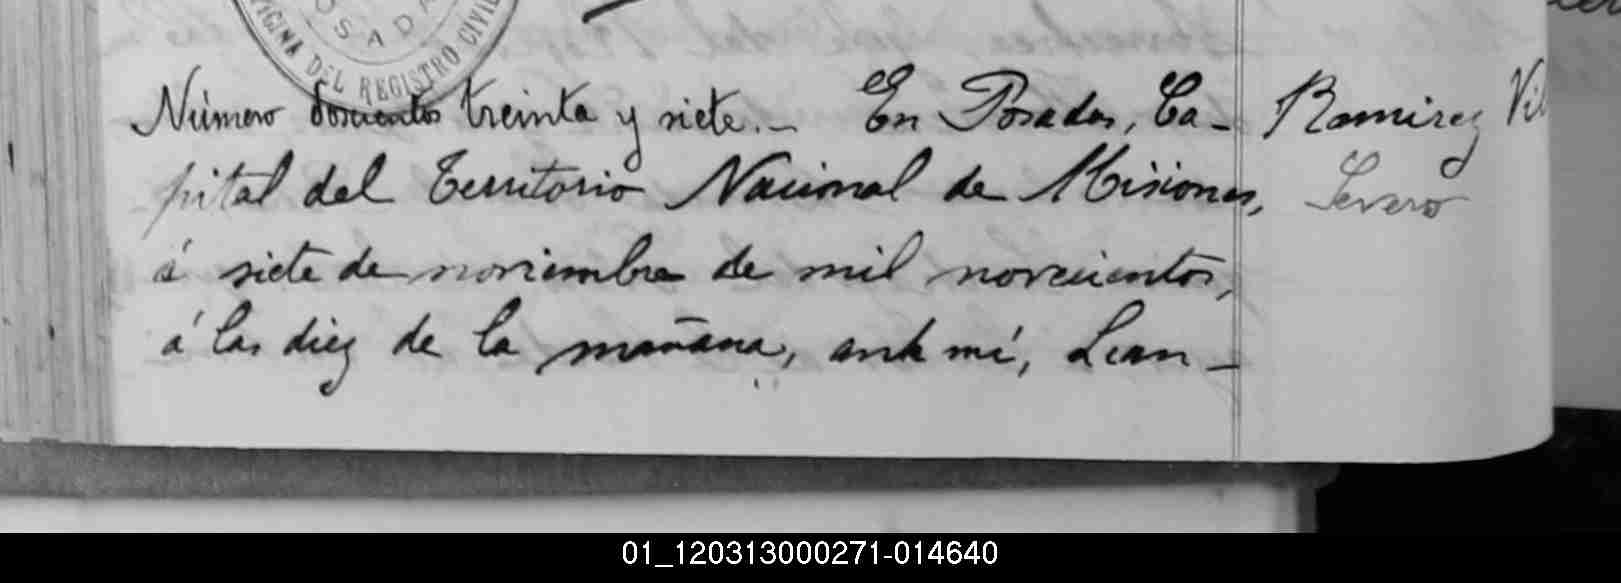 POSADA
OFICINA DEL REGISTRO CIVIL
Número doscientos treinta y siete.- En Posadas, Ca-
pital del Territorio Nacional de Misiones,
á siete de noviembre de mil novecientos,
á las diez de la mañana, ante mí, Lean-
Ramirez Vil
Severo
01_120313000271-014640